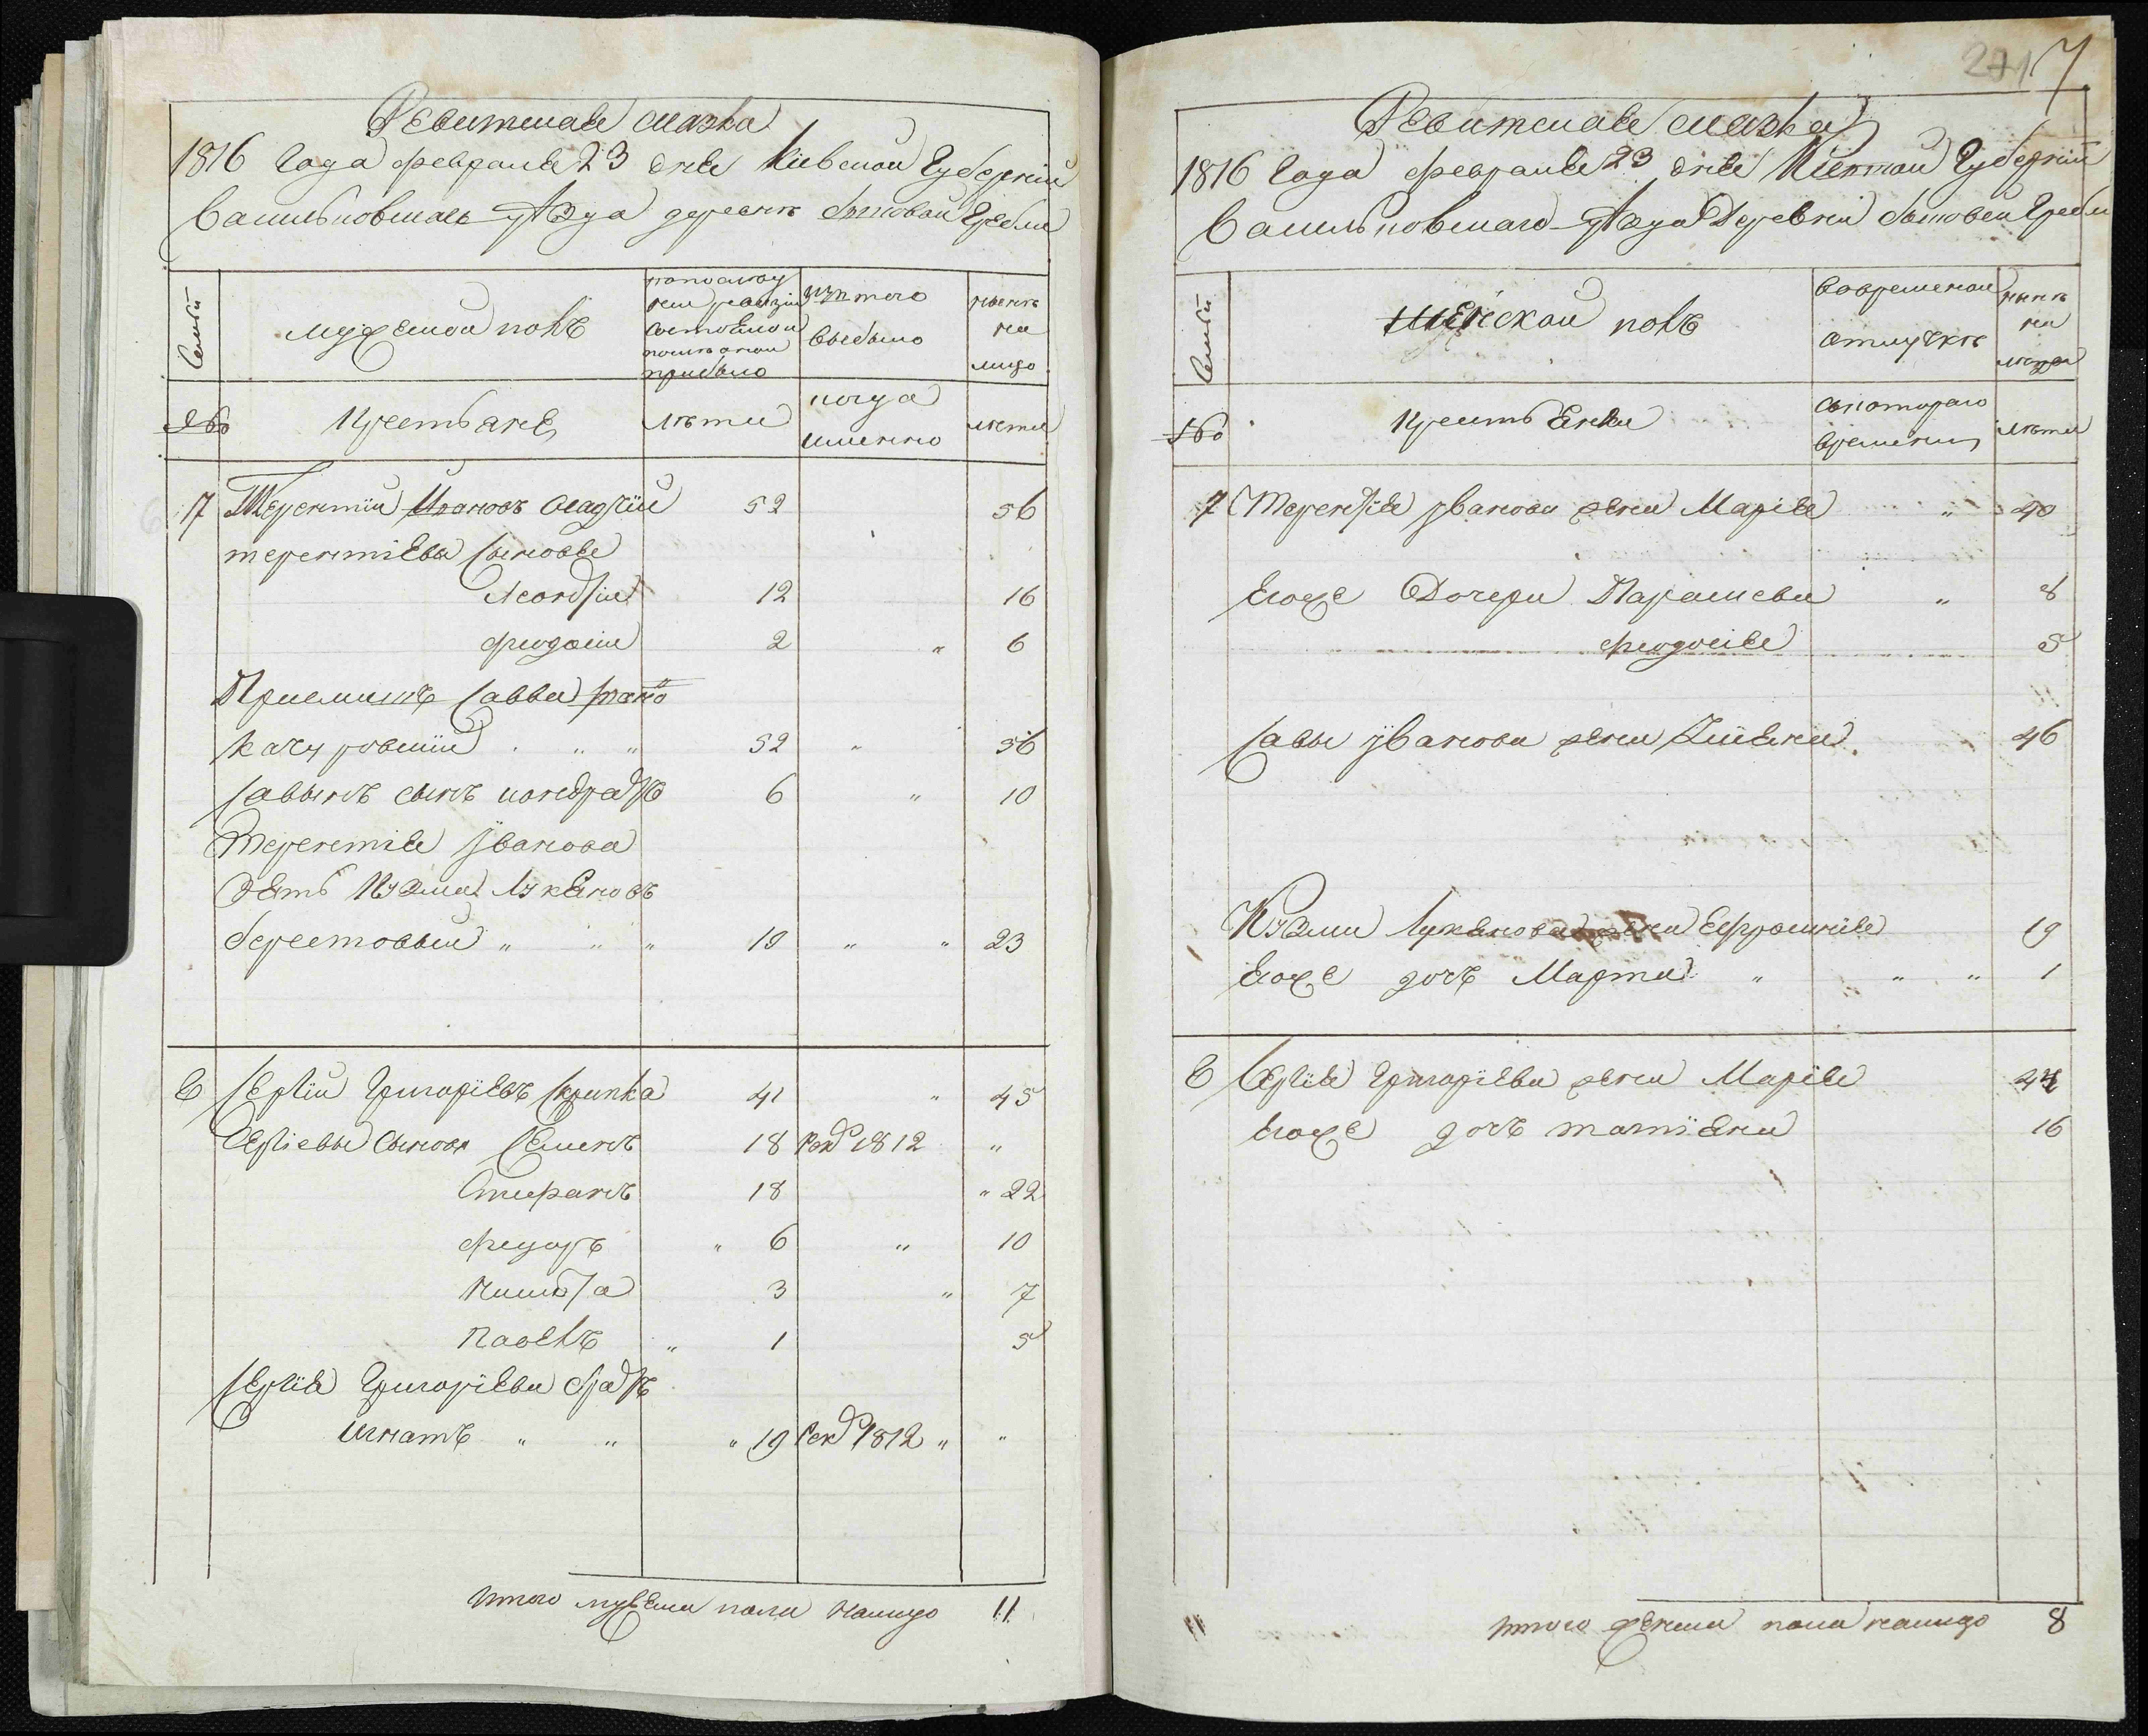 Ревизская сказка
1816 года февраля 23 дня Киевской Губерніи
Васильковскаго уѣзда деревни Бытовой Гребли
Семьи
мужеской полъ
по последней ревизіи состояло и после оной прибыло
изъ того выбыло
нынѣ на лицо
№
Крестьяне
лѣты
когда именно
лѣты
7 Терентий Ивановъ Осадчій 52 56
терентиевы сыновья
Леонтій 12 16
феодосій 2 " 6
Приемышъ Савва Ивано
качуровский " " 52 " 56
Саввинъ сынъ кондратъ 6 " 10
Терентия Иванова
зять Кузма Лукяновъ
берестовый " " " 19 " " 23
8 Сергій Григориевъ Скрипка 41 " 45
Сергіевы сыновя Семенъ 18 рек 1812 "
Стефанъ 18 " 22
федоръ " 6 " 10
Никита 3 " 7
Павелъ " 1 5
Сергія Григориева братъ
Игнатъ " " " 19 рек 1812 " "
Итого мужеска пола налицо 11
271 7
Ревизская сказка
1816 года февраля 23 дня Киевской Губерніи
Васильковскаго уѣзда Деревни Бытовой Гребли
Семьи
Женской полъ
во временной отлучкѣ
нынѣ на лицо
№
Крестьянки
съ котораго времени
лѣты
7 Терентія Иванова жена Марія " 40
Егоже Дочери Параскева " 8
феодосия 5
Савы Иванова жена 46
Кузми Лукянова жена Ефросиния 19
Егоже дочъ Марта " " " 1
8 Сергія Григориева жена Марія 44
Егоже дочъ татияна 16
Итого женска пола налицо 8